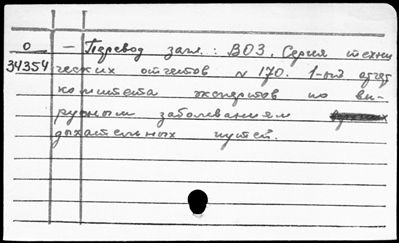 О — Перевод загл.: ВОЗ. Серия техни
34354 ческих отчетов N 170. 1-ый отчет
комитета экспертов по ви-
русным заболеваниям
дыхательных путей.